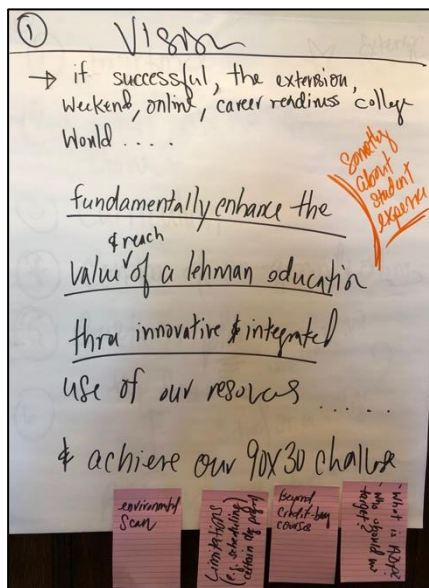 ①
Vision
→ if successful, the extension,
weekend, online, career readiness college
World ....
Somethg
about
student
experience
fundamentally enhance the
& reach
value of a lehman education
thru innovative & integrated
use of our resources .....
& achieve our 90x30 challenge
environmental
Scan
Limitations
(e.g. scheduling)
certain deg prgm)
beyond
credit-bearing
courses
- What is
- who should we
target?